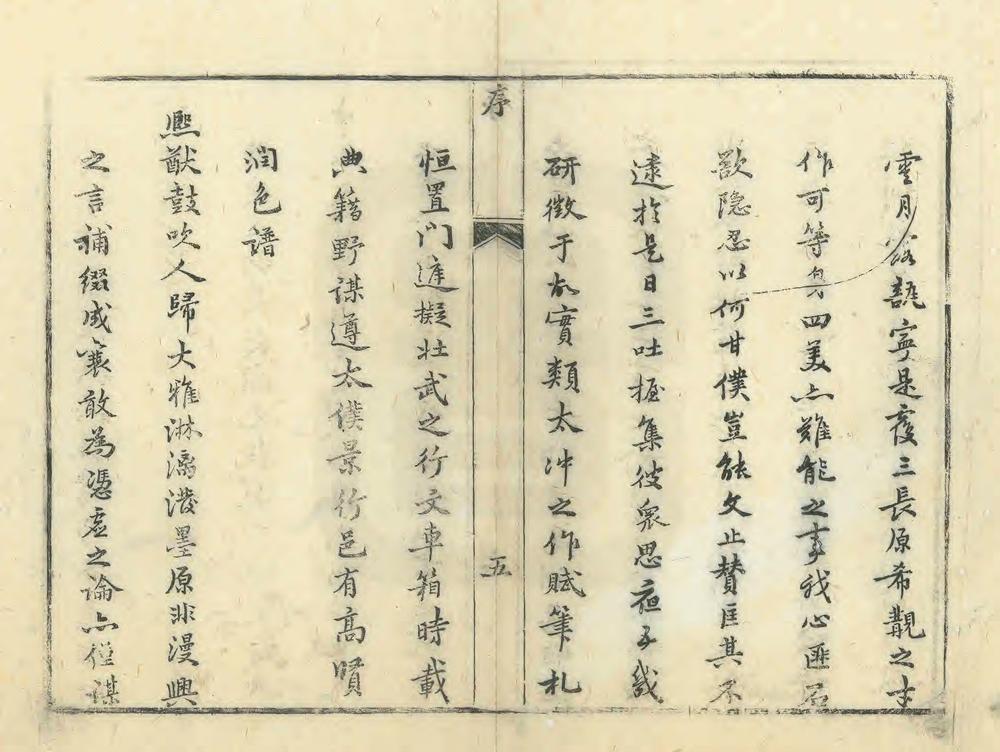 雪月露誰寧是覆三長原希覯之才
作可等身四美亦難能之事我心匪石
歌隐忍以何甘僕豈能文止賛匡其不
逮於是日三吐握集彼衆思夜子哉
研徵于㡳實類太冲之作賦筆札
序
五
恒置門遮擬壮武之行文車箱時載
典籍野謀遵太僕景行邑有高賢
潤色譜
熈猷鼓吹人歸大雅淋漓潑墨原非漫興
之言補綴成裘敢為憑虚之論亦僅謀